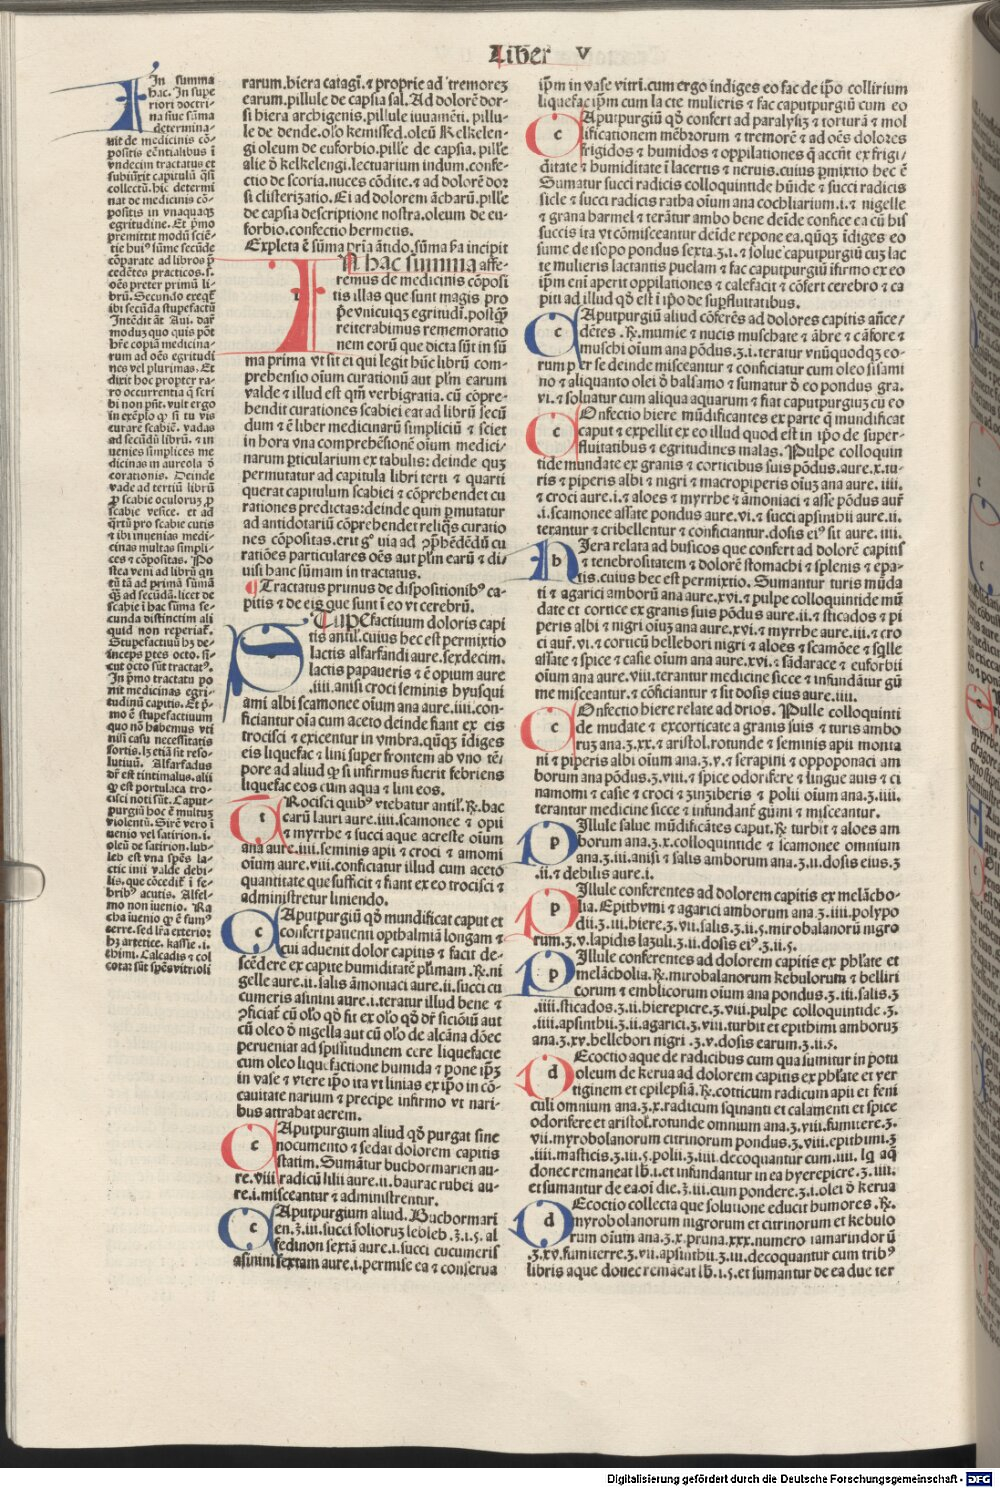 Liber v
In summa
hac. In supe
riori doctri-
na siue sūma
determina-
uit de medicinis cō-
positis cēntialibus ī
vndecim tractatus et
subiūxit capitulū q̄si
collectū. hic determi
nat de medicinis cō-
positis in vnaquaqꝫ
egritudine. Et p̄mo
premittit modū sciē-
tie huiꝰ sūme secūde
cōparate ad libros p̄
cedētes practicos. s.
oēs preter primū li-
brū. Secundo exeqt̄
ibi secūda stupefactū
Intēdit āt Aui. dar̄
modus quo quis pōt
hr̄e copiā medicina-
rum ad oēs egritudi
nes vel plurimas. Et
dixit hoc propter ra-
ro occurrentia q̄ scri
bi non pn̄t. vult ergo
in exēplo ꝙ si tu vis
curare scabiē. vadas
ad secūdū librū. ⁊ in
uenies simplices me
dicinas in aureola d̄
corationis. Deinde
vade ad tertiū librū
ꝓ scabie oculorum ꝓ
scabie vesice. et ad
q̄rtū pro scabie cutis
⁊ ibi inuenias medi-
cinas multas simpli-
ces ⁊ cōpositas. Po
stea veni ad librū qn
tū tā ad primā sūmā
q̄ꝫ ad secūdā. licet de
scabie ī hac sūma se-
cunda distinctim ali
quid non reperiat̄.
Stupefactiuū hꝫ de-
inceps ꝑtes octo. si-
cut octo sūt tractatꝰ.
In p̄mo tractatu po
nit medicinas egri-
tudinū capitis. Et p̄-
mo ē stupefactiuum
quo nō habemus vti
nisi casu necessitatis
fortis. lꝫ etiā sit reso-
lutiuū. Alfarfadus
dr̄ est tintimalus. alii
ꝙ est portulaca tro-
cisci noti sūt. Caput-
purgiū hoc ē multuꝫ
violentū. Sirē vero ī
uenio vel satirion. i.
oleū de satirion. lub-
leb est vna spēs la-
ctic inii valde debi-
lis. que cōcedit̄ ī fe-
bribꝰ acutis. Alfel-
mo non iuenio. Ra
cha iuenio ꝙ ē fumꝰ
terre. sed lr̄a exterior
hꝫ artetice. kassie .i.
thimi. Calcadis ⁊ col
cotar sūt spēs vitrioli
rarum. hiera catagī. ⁊ proprie ad tremoreꝫ
earum. pillule de capsia sal. Ad dolorē dor-
si hiera archigenis. pillule iuuamēti. pillu-
le de dende. oľo kemissed. oleū kelkelen-
gi oleum de euforbio. piľle de capsia. piľle
alie d̄ kelkelengi. lectuarium indum. confe-
ctio de scoria. nuces cōdite. ⁊ ad dolorē dor
si clisterizatio. Ei ad dolorem ācharū. piľle
de capsia descriptione nostra. oleum de eu-
forbio. confectio hermetis.
Expleta ē sūma pria ātido. sūma ẜa incipit
IN hac summa affe-
remus de medicinis cōposi
tis illas que sunt magis pro
p̄e vnicuiqꝫ egritudī. postq̄ꝫ
reiterabimus rememoratio
nem eorū que dicta sūt in sū
ma prima vt sit ei qui legit hūc librū com-
prehensio oīum curationū aut plīm earum
valde ⁊ illud est qm̄ verbigratia. cū cōpre-
hendit curationes scabiei eat ad librū secū
dum ⁊ ē liber medicinarū simpliciū ⁊ sciet
in hora vna comprehēsionē oīum medici-
narum ꝑticularium ex tabulis: deinde quꝫ
permutatur ad capitula libri terti ⁊ quarti
querat capitulum scabiei ⁊ cōprehendet cu
rationes predictas: deinde qum ꝑmutatur
ad antidotariū cōprehendet reliqꝫ curatio
nes cōpositas. erit gͦ via ad ꝯp̄hēdēdū cu
ratiōes particulares oēs aut plīm earū ⁊ di
uisi hanc sūmam in tractatus.
¶ Tractatus primus de dispositionibꝰ ca-
pitis ⁊ de eis que sunt ī eo vt cerebrū.
STupefactiuum doloris capi
tis antiľ. cuius hec est permixtio
lactis alfarfandi aure. sexdecim.
lactis papaueris ⁊ ē opium aure
.iiii. anisi croci seminis hyusqui
ami albi scamonee oīum ana aure. iii. con-
ficiantur oīa cum aceto deinde fiant ex eis
trocisci ⁊ exicentur in vmbra. qūqꝫ īdiges
eis liquefac ⁊ lini super frontem ab vno tē-
pore ad aliud ꝙ si infirmus fuerit febriens
liquefac eos cum aqua ⁊ lini eos.
TRocisci quibꝰ vtebatur antiľ. ℞. bac
carū lauri aure. iiii. scamonee ⁊ opii
⁊ myrrhe ⁊ succi aque acreste oīum
ana aure. iii. seminis apii ⁊ croci ⁊ amomi
oīum aure. viii. conficiatur illud cum aceto
quantitate que sufficit ⁊ fiant ex eo trocisci ⁊
administretur liniendo.
CAputpurgiū qd̄ mundificat caput et
confert patienti opthalmiā longam ⁊
cui aduenit dolor capitis ⁊ facit de-
scēdere ex capite humiditatē plīmam. ℞. ni
gelle aure. ii. salis āmoniaci aure. ii. succi cu
cumeris asinini aure. i. teratur illud bene ⁊
ꝯficiat̄ cū oľo qd̄ fit ex oľo qd̄ dr̄ siciōiū aut
cū oleo d̄ nigella aut cū oľo de alcāna dōec
perueniat ad spissitudinem cere liquefacte
cum oleo liquefactione humida ⁊ pone ip̄ꝫ
in vase ⁊ vtere ip̄o ita vt linias ex ip̄o in cō-
cauitate narium ⁊ precipe infirmo vt nari-
bus attrahat aerem.
CAputpurgium aliud qd̄ purgat sine
nocumento ⁊ sedat dolorem capitis
statim. Sumātur buchormarien au-
re. viii. radicū lilii aure. ii. baurac rubei au-
re. i. misceantur ⁊ administrentur.
CAputpurgium aliud. Buchormari
en. ʒ. iii. succi foliorum lebleb. ʒ. i. ꝭ. al
fedinon sextā aure. i. succi cucumeris
asinini sextam aure. i. permisce ea ⁊ conserua
ip̄m in vase vitri. cum ergo indiges eo fac de ip̄o collirium
liquefac ip̄m cum lacte mulieris ⁊ fac caputpurgiū cum eo
CAputpurgiū qd̄ confert ad paralysiꝫ ⁊ torturā ⁊ mol
lificationem mēbrorum ⁊ tremorē ⁊ ad oēs dolores
frigidos ⁊ humidos ⁊ oppilationes q̄ accn̄t ex frigi/
ditate ⁊ humiditate ī lacertis ⁊ neruis. cuius ꝑmixtio hec ē
Sumatur succi radicis colloquintide hūide ⁊ succi radicis
sicle ⁊ succi radicis ratha oīum ana cochliarium. i. ⁊ nigelle
⁊ grana harmel ⁊ terātur ambo bene deīde confice ea cū his
succis ita vt cōmisceantur deīde repone ea. qūqꝫ īdiges eo
sume de isopo pondus sexta. ʒ. i. ⁊ solue caputpurgiū cuꝫ lac
te mulieris lactantis puelam ⁊ fac caputpurgiū īfirmo ex eo
ip̄m eni aperit oppilationes ⁊ calefacit ⁊ cōfert cerebro ⁊ ca
piti ad illud qd̄ est ī ip̄o de supfluitatibus.
CAputpurgiū aliud cōferēs ad dolores capitis an̄ce/
dētes. ℞. mumie ⁊ nucis muschate ⁊ ābre ⁊ cāfore ⁊
muschi oīum ana pōdus. ʒ. i. teratur vnūquodqꝫ eo-
rum per se deinde misceantur ⁊ conficiatur cum oleo sisami
no ⁊ aliquanto olei d̄ balsamo ⁊ sumatur d̄ eo pondus gra.
vi. ⁊ soluatur cum aliqua aquarum ⁊ fiat caputpurgiuꝫ cū eo
COnfectio hiere mūdificantes ex parte q̄ mundificat
caput ⁊ expellit ex eo illud quod est in ip̄o de super-
fluitatibus ⁊ egritudines malas. Pulpe colloquin
tide mundate ex granis ⁊ corticibus suis pōdus. aure. x. tu-
ris ⁊ piperis albi ⁊ nigri ⁊ macropiperis oīuꝫ ana aure. iiii.
⁊ croci aure. i. ⁊ aloes ⁊ myrrhe ⁊ āmoniaci ⁊ asse pōdus aur̄
.i. scamonee assate pondus aure. vi. ⁊ succi apsinthii aure. ii.
terantur ⁊ cribellentur ⁊ conficiantur. dosis eiꝰ sit aure. iiii.
HIera relata ad busicos que confert ad dolorē capitis
⁊ tenebrositatem ⁊ dolorē stomachi ⁊ splenis ⁊ epa-
tis. cuius hec est permixtio. Sumantur turis mūda
ti ⁊ agarici amborū ana aure. xvi. ⁊ pulpe colloquintide mū
date et cortice ex granis suis pōdus aure. ii. ⁊ sticados ⁊ pi
peris albi ⁊ nigri oīuꝫ ana aure. xvi. ⁊ myrrhe aure. iii. ⁊ cro
ci aur̄. vi. ⁊ corticū hellebori nigri ⁊ aloes ⁊ scamōee ⁊ sqlle
assate ⁊ spice ⁊ casie oīum ana aure. xvi. ⁊ sādarace ⁊ euforbii
oīum ana aure. viii. terantur medicine sicce ⁊ infundātur gū
me misceantur. ⁊ cōficiantur ⁊ sit dosis eius aure. iiii.
COnfectio hiere relate ad drios. Pulle colloquinti
de mūdate ⁊ excorticate a granis suis ⁊ turis ambo
ruꝫ ana. ʒ. xx. ⁊ aristol. rotunde ⁊ seminis apii monta
ni ⁊ piperis albi oīum ana. ʒ. v. ⁊ serapini ⁊ oppoponaci am
borum ana pōdus. ʒ. viii. ⁊ spice odorifere ⁊ lingue auis ⁊ ci
namomi ⁊ casie ⁊ croci ⁊ zinziberis ⁊ polii oīum ana. ʒ. iiii.
terantur medicine sicce ⁊ infundant̄ gūmi ⁊ misceantur.
PIllule salue mūdificātes caput. ℞. turbit ⁊ aloes am
borum ana. ʒ. x. colloquintide ⁊ scamonee omnium
ana. ʒ. iii. anisi ⁊ salis amborum ana. ʒ. ii. dosis eius. ʒ
.ii. ⁊ debilis aure. i.
PIllule conferentes ad dolorem capitis ex melācho-
lia. Epithymi ⁊ agarici amborum ana. ʒ. iiii. polypo
dii. ʒ. iii. hiere. ʒ. vii. salis. ʒ. ii. ꝭ. mirobalanorū nigro
rum. ʒ. v. lapidis lazuli. ʒ. ii. dosis eiꝰ. ʒ. ii. ꝭ.
PIllule conferentes ad dolorem capitis ex phľate et
melācholia. ℞. mirobalanorum kebulorum ⁊ belliri
corum ⁊ emblicorum oīum ana pondus. ʒ. iii. salis. ʒ
.iiii. sticados. ʒ. ii. hierepicre. ʒ. viii. pulpe colloquintide. ʒ.
.iiii. apsinthii. ʒ. ii. agarici. ʒ. viii. turbit et epithimi amboruꝫ
ana. ʒ. xv. hellebori nigri .ʒ. v. dosis earum. ʒ. ii. ꝭ.
DEcoctio aque de radicibus cum qua sumitur in potu
oleum de kerua ad dolorem capitis ex phľate et ver
tiginem et epilepsiā. ℞. corticum radicum apii et feni
culi omnium ana. ʒ. x. radicum squinanti et calamenti et spice
odorifere et aristol. rotunde omnium ana. ʒ. viii. fumiterre. ʒ.
vii. myrobolanorum citrinorum pondus. ʒ. viii. epithimi. ʒ
.iiii. masticis. ʒ. iii. ꝭ. polii. ʒ. iiii. decoquantur cum. iiii. lꝗ aq̄
donec remaneat lb. i. et infundantur in ea hyerepicre. ʒ. iiii.
et sumantur de ea oī die. ʒ. iii. cum pondere. ʒ. i. olei d̄ kerua
DEcoctio collecta que solutione educit humores. ℞.
myrobolanorum nigrorum et citrinorum et kebulo
rum oīum ana. ʒ. x. pruna. xxx. numero tamarindorū
.ʒ. xv. fumiterre. ʒ. vii. apsinthii. ʒ. iii. decoquantur cum tribꝰ
libris aque donec remaneat lb. i. ꝭ. et sumantur de ea due ter
Digitalisierung gefördert durch die Deutsche Forschungsgemeinschaft - DFG